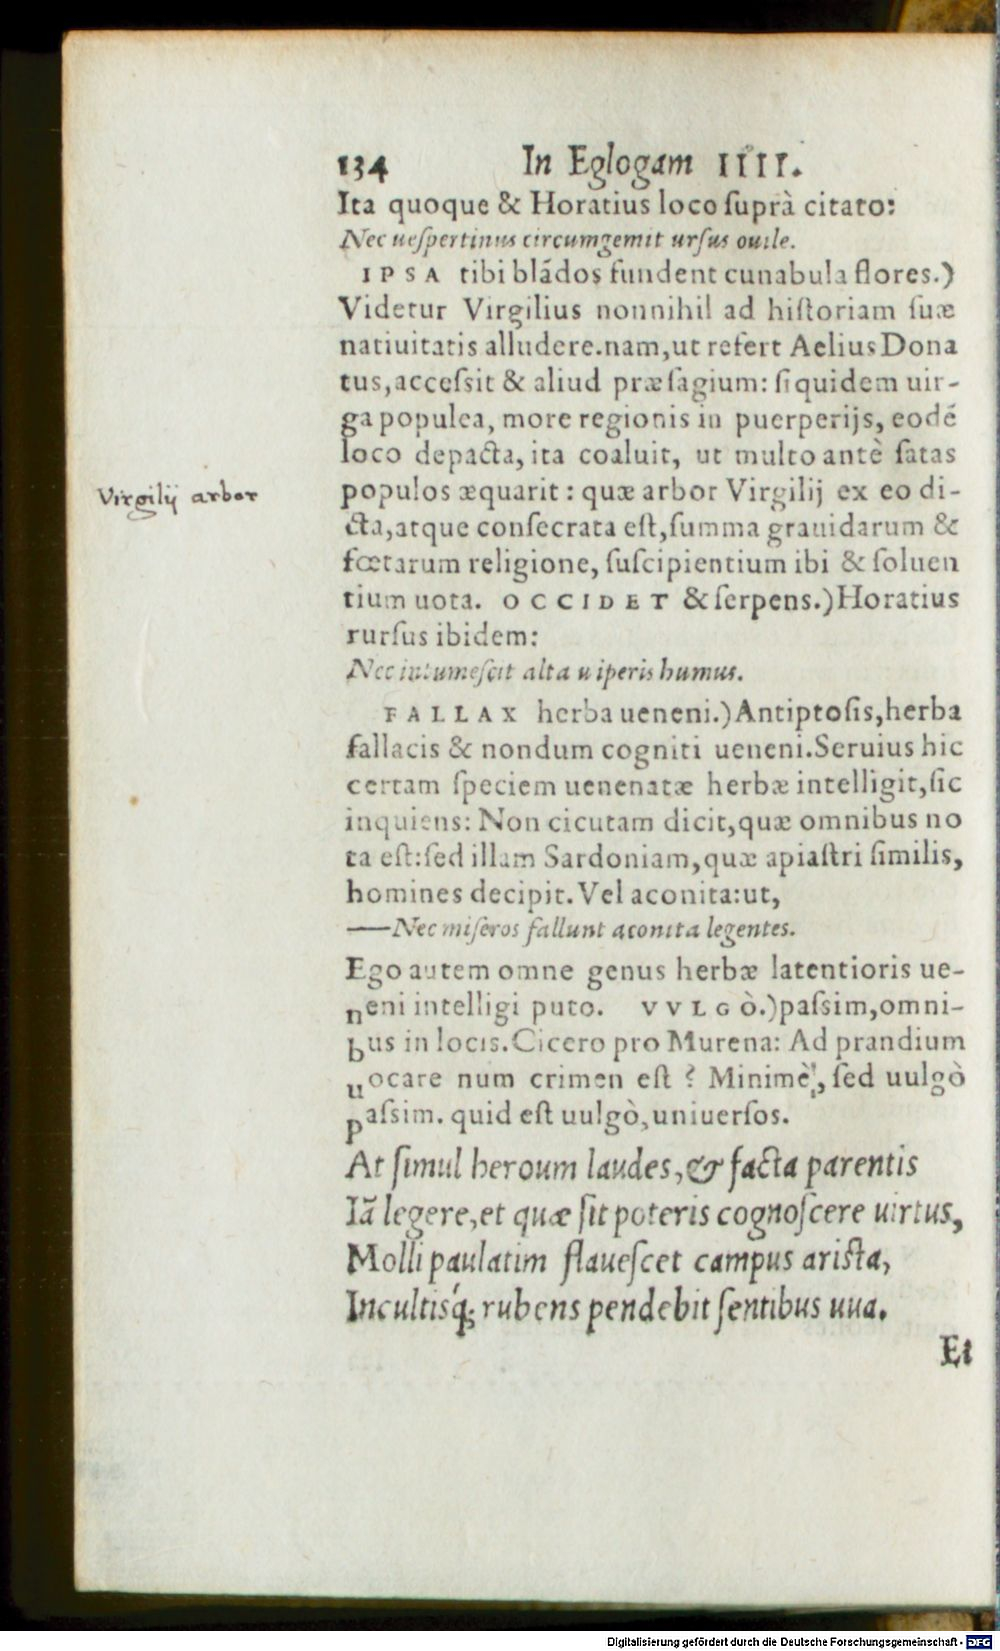 134 In Eglogam IIII.
Ita quoque & Horatius loco ſuprà citato:
Nec ueſpertinus circumgemit urſus ouile.
IPSA tibi blādos fundent cunabula flores.)
Videtur Virgilius nonnihil ad hiſtoriam ſuæ
natiuitatis alludere.nam,ut refert Aelius Dona
tus,acceſsit & aliud præſagium: ſiquidem uir-
ga populea, more regionis in puerperijs, eodē
loco depacta, ita coaluit, ut multo antè ſatas
Virgilij arbor
populos æquarit : quæ arbor Virgilij ex eo di-
cta,atque conſecrata eſt,ſumma grauidarum &
fœtarum religione, ſuſcipientium ibi & ſoluen
tium uota. OCCIDET & ſerpens.)Horatius
rurſus ibidem:
Nec intumeſcit alta uiperis humus.
FALLAX herba ueneni.)Antiptoſis,herba
fallacis & nondum cogniti ueneni.Seruius hic
certam ſpeciem uenenatæ herbæ intelligit,ſic
inquiens: Non cicutam dicit,quæ omnibus no
ta eſt:ſed illam Sardoniam,quæ apiaſtri ſimilis,
homines decipit. Vel aconita:ut,
—Nec miſeros fallunt aconita legentes.
Ego autem omne genus herbæ latentioris ue-
neni intelligi puto. VVLGÒ.)paſsim,omni-
bus in locis.Cicero pro Murena: Ad prandium
uocare num crimen eſt ? Minimè, ſed uulgò
paſsim. quid eſt uulgò,uniuerſos.
At ſimul heroum laudes,& facta parentis
Iā legere,et quæ ſit poteris cognoſcere uirtus,
Molli paulatim flaueſcet campus ariſta,
Incultisq́; rubens pendebit ſentibus uua.
Et
Digitalisierung gefördert durch die Deutsche Forschungsgemeinschaft - DFG